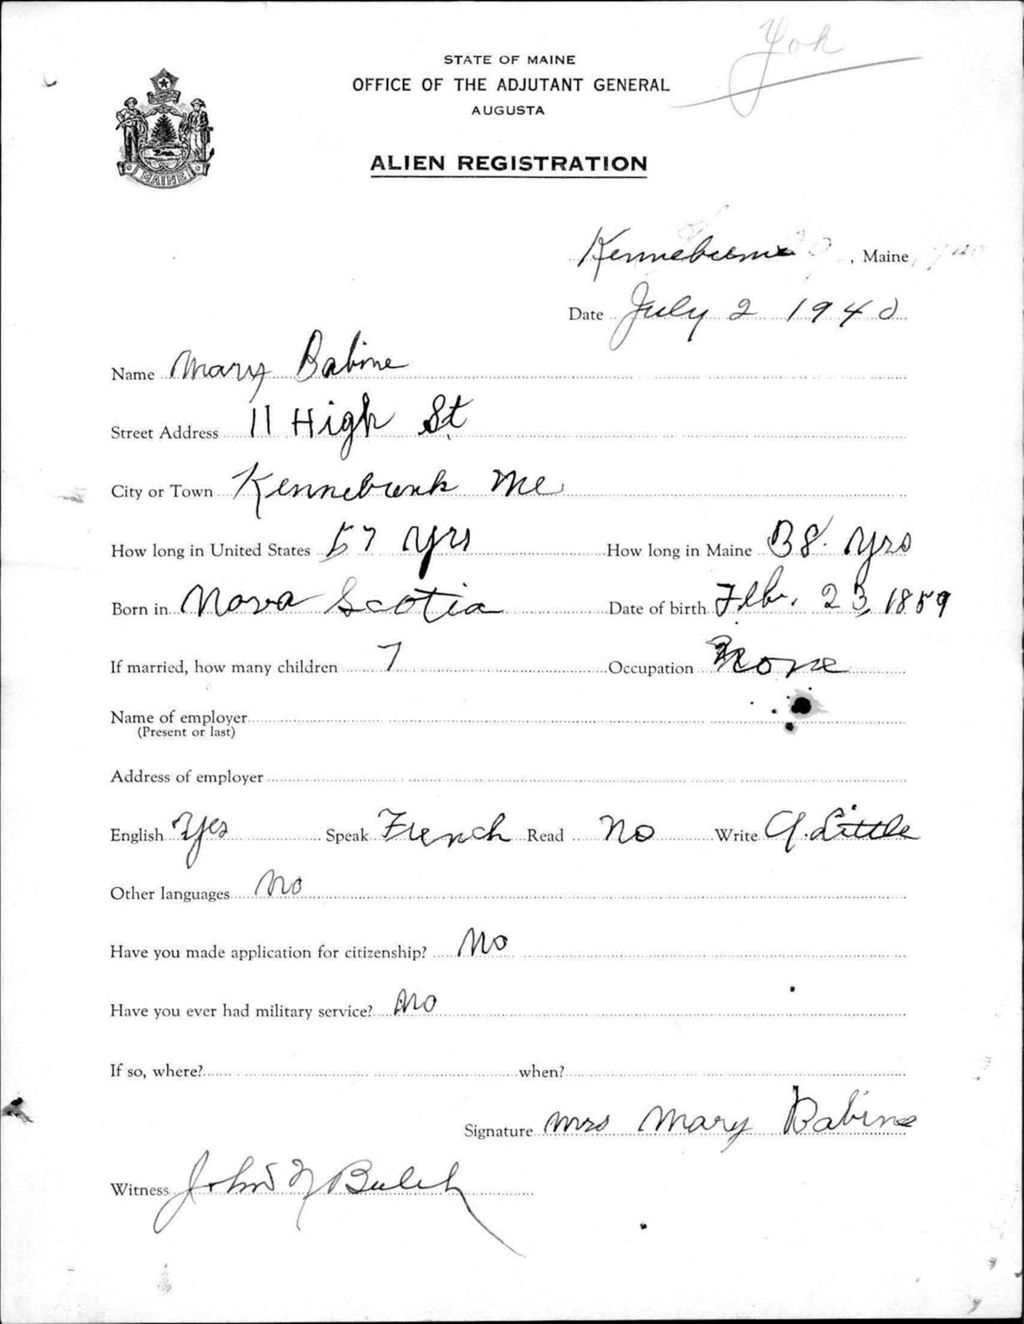 Yok
STATE OF MAINE
OFFICE OF THE ADJUTANT GENERAL
AUGUSTA
ALIEN REGISTRATION
MAINE
Kennebunk, Maine
Date July 2 1940
Name Mary Babine
Street Address 11 High St
City or Town Kennebunk Me
How long in United States 57 Yrs How long in Maine 38 Yrs
Born in Nova Scotia Date of birth Feb. 23, 1859
If married, how many children 7 Occupation None
Name of employer
(Present or last)
Address of employer
English Yes Speak French Read No Write A. Little
Other languages No
Have you made application for citizenship? No
Have you ever had military service? No
If so, where? when?
Signature Mrs Mary Babine
Witness John